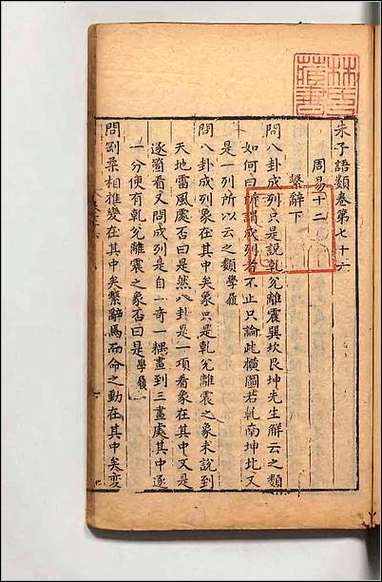 朱子語類卷第七十六
周易十二
繫辭下
問八卦成列只是說乾兌離震巽坎艮坤先生解云之類
如何曰所謂成列者不止只論此橫圖若乾南坤北又
是一列所以云之類學履
問八卦成列象在其中矣象只是乾兌離震之象未說到
天地雷風處否曰是然八卦是一項看象在其中又是
逐箇看又問成列是自一奇一耦畫到三畫處其中逐
一分便有乾兌離震之象否曰是學履
問剛柔相推變在其中矣繫辭焉而命之動在其中矣變